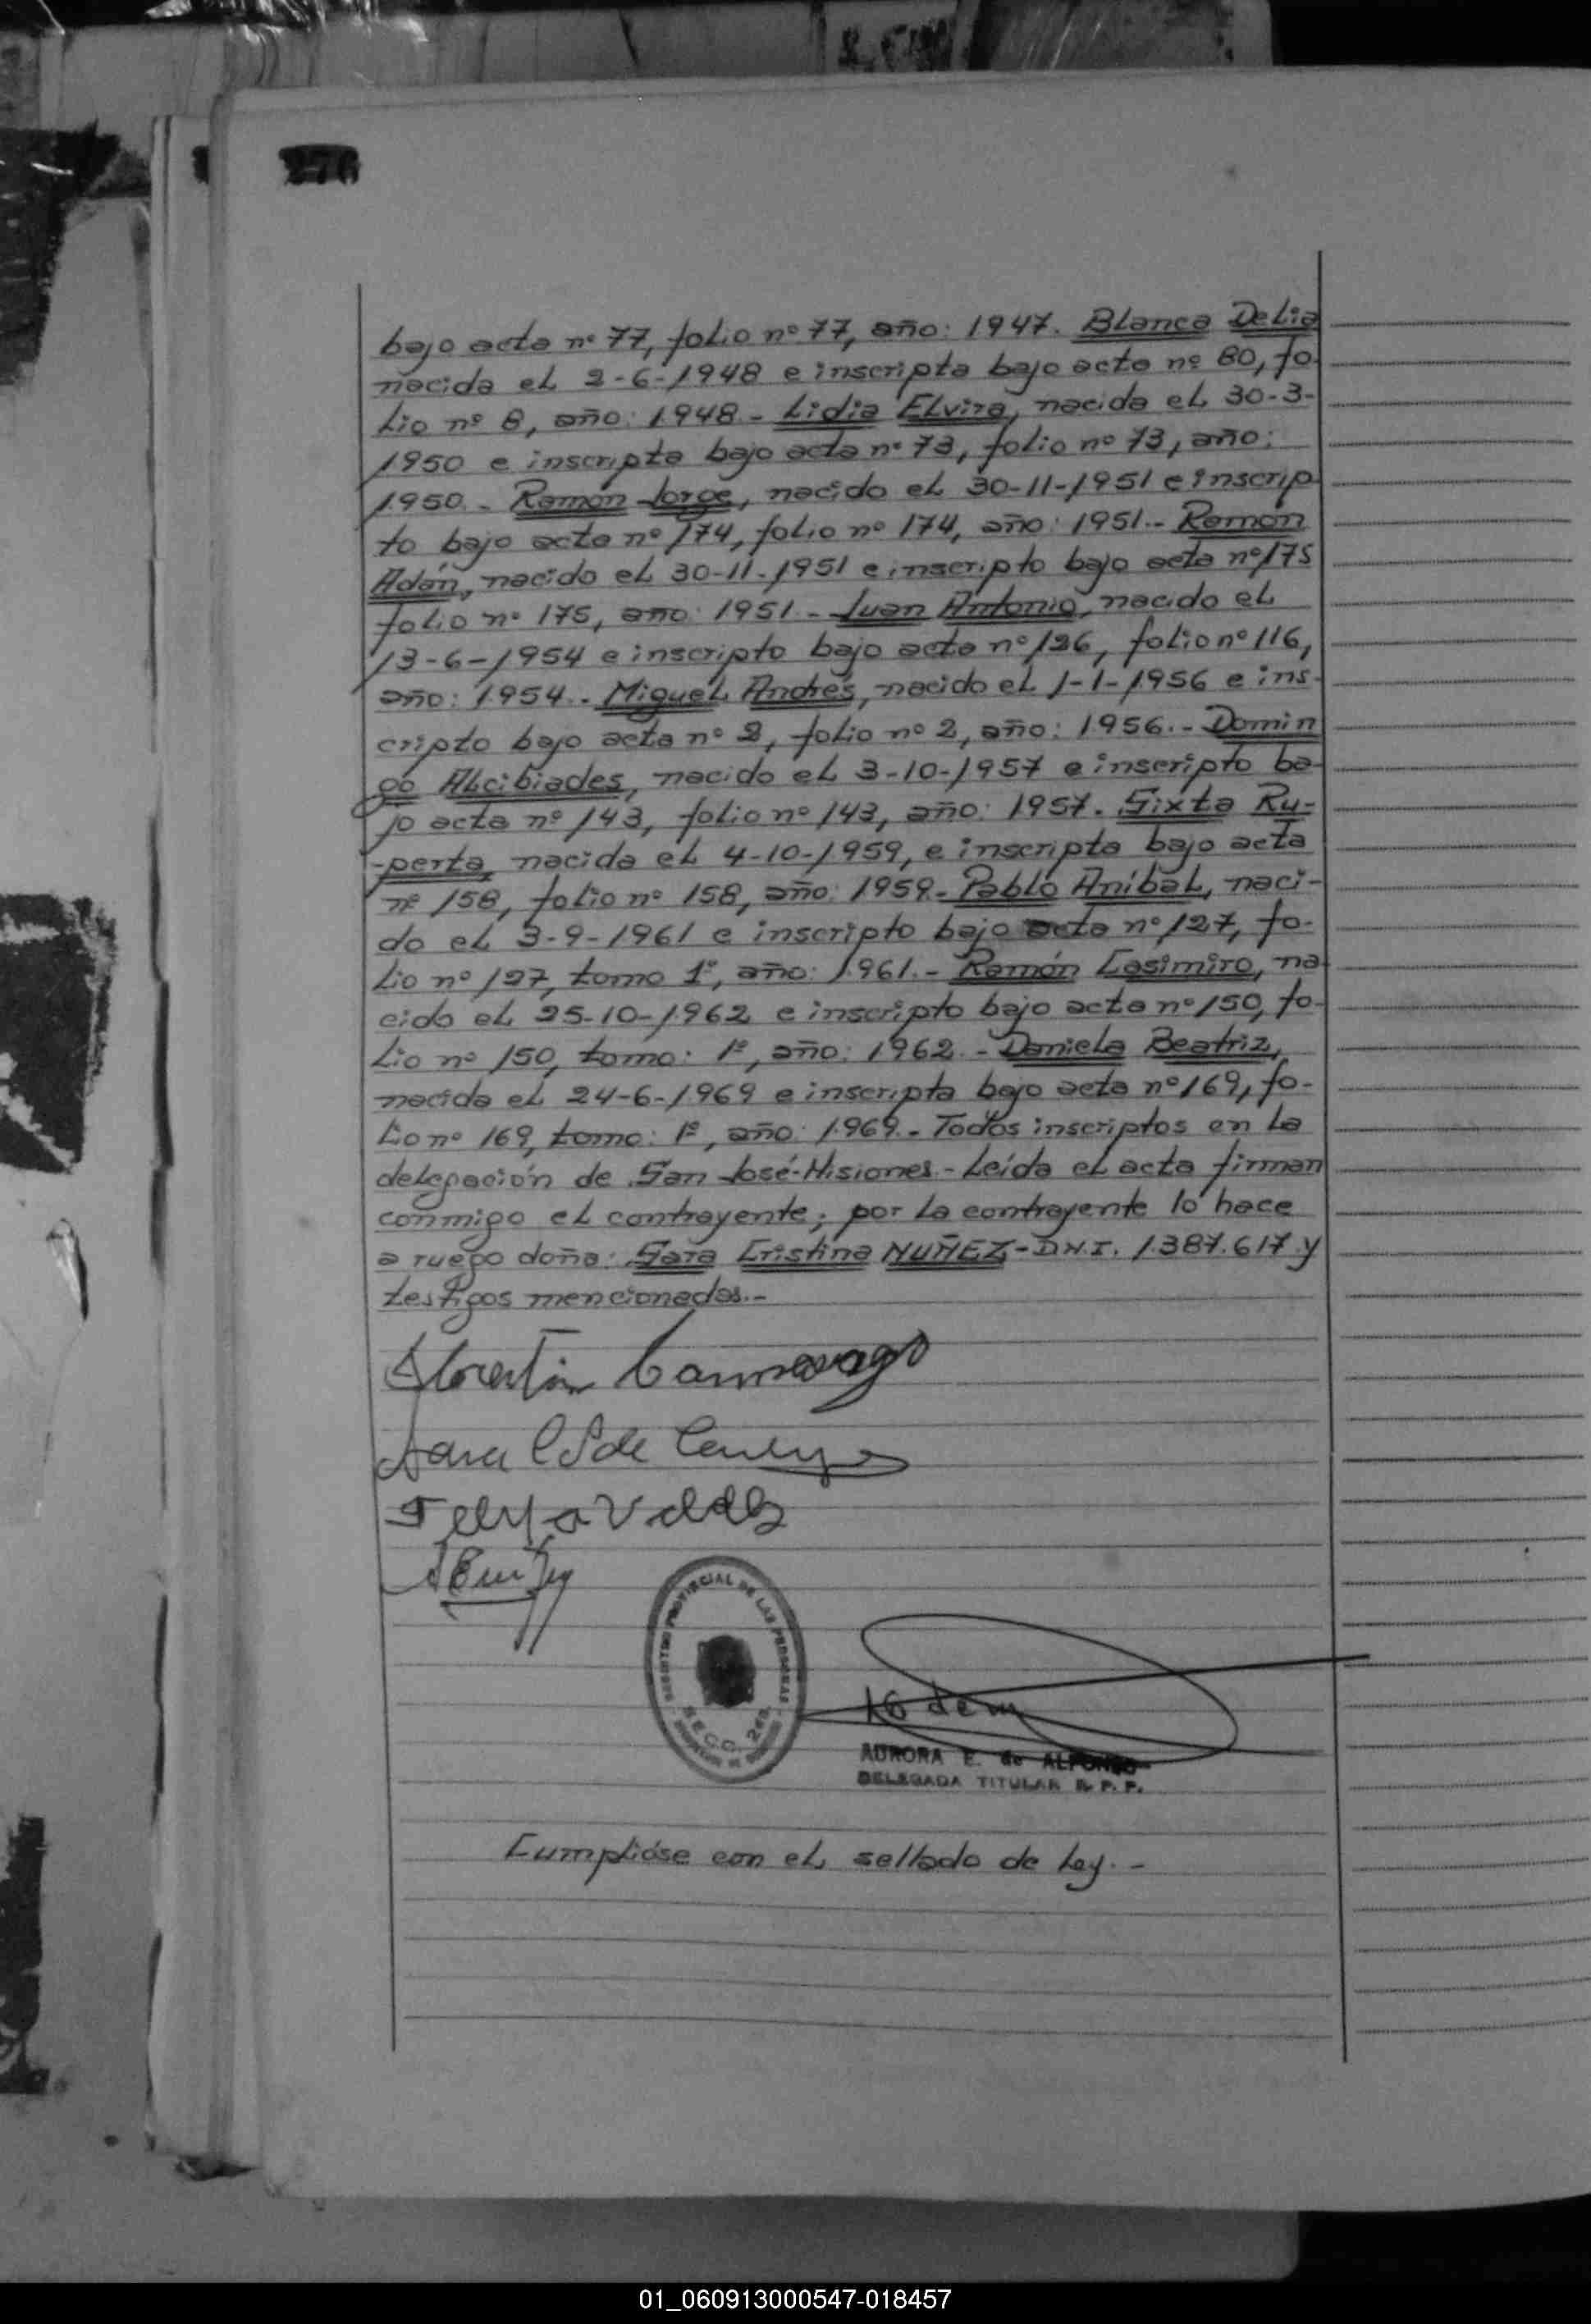 276
bajo acta nº 77, folio nº 77, año: 1947. Blanca Delia
nacida el 2-6-1948 e inscripta bajo acta nº 80, fo-
lio nº 8, año: 1948.- Lidia Elvira, nacida el 30-3-
1950 e inscripta bajo acta nº 73, folio nº 73, año:
1950.- Ramón Jorge, nacido el 30-11-1951 e inscrip
to bajo acta nº 174, folio nº 174, año: 1951.- Ramón
Adán, nacido el 30-11-1951 e inscripto bajo acta nº 175
folio nº 175, año: 1951.- Juan Antonio, nacido el
13-6-1954 e inscripto bajo acta nº 126, folio nº 116,
año: 1954.- Miguel Andrés, nacido el 1-1-1956 e ins-
cripto bajo acta nº 2, folio nº 2, año: 1956.- Domin
go Alcibiades, nacido el 3-10-1957 e inscripto ba-
jo acta nº 143, folio nº 143, año: 1957. Sixta Ru-
-perta, nacida el 4-10-1959, e inscripta bajo acta
nº 158, folio nº 158, año: 1959.- Pablo Aníbal, naci-
do el 3-9-1961 e inscripto bajo acta nº 127, fo-
lio nº 127, tomo 1º, año: 1961.- Ramón Casimiro, na-
cido el 25-10-1962 e inscripto bajo acta nº 150, fo-
lio nº 150, tomo: 1º, año: 1962.- Daniela Beatriz,
nacida el 24-6-1969 e inscripta bajo acta nº 169, fo-
lio nº 169, tomo: 1º, año: 1969.- Todos inscriptos en la
delegación de San José-Misiones.- Leída el acta firman
conmigo el contrayente; por la contrayente lo hace
a ruego doña: Sara Cristina NUÑEZ-D.N.I. 1.387.617 y
testigos mencionados.-
Florentín Camargo
Sara de
REGISTRO PROVINCIAL DE LAS PERSONAS
SECC. 2da.
AURORA E. de ALFONSO
DELEGADA TITULAR R. P. P.
Cumplióse con el sellado de Ley.-
01_060913000547-018457